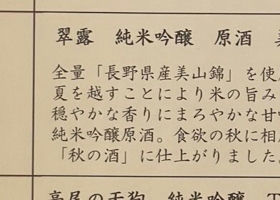 翠露 純米吟醸 原酒
全量「長野県産美山錦」を使
夏を越すことにより米の旨み
穏やかな香りにまろやかな甘
純米吟醸原酒。食欲の秋に相
「秋の酒」に仕上がりました
高尾の天狗 純米吟醸